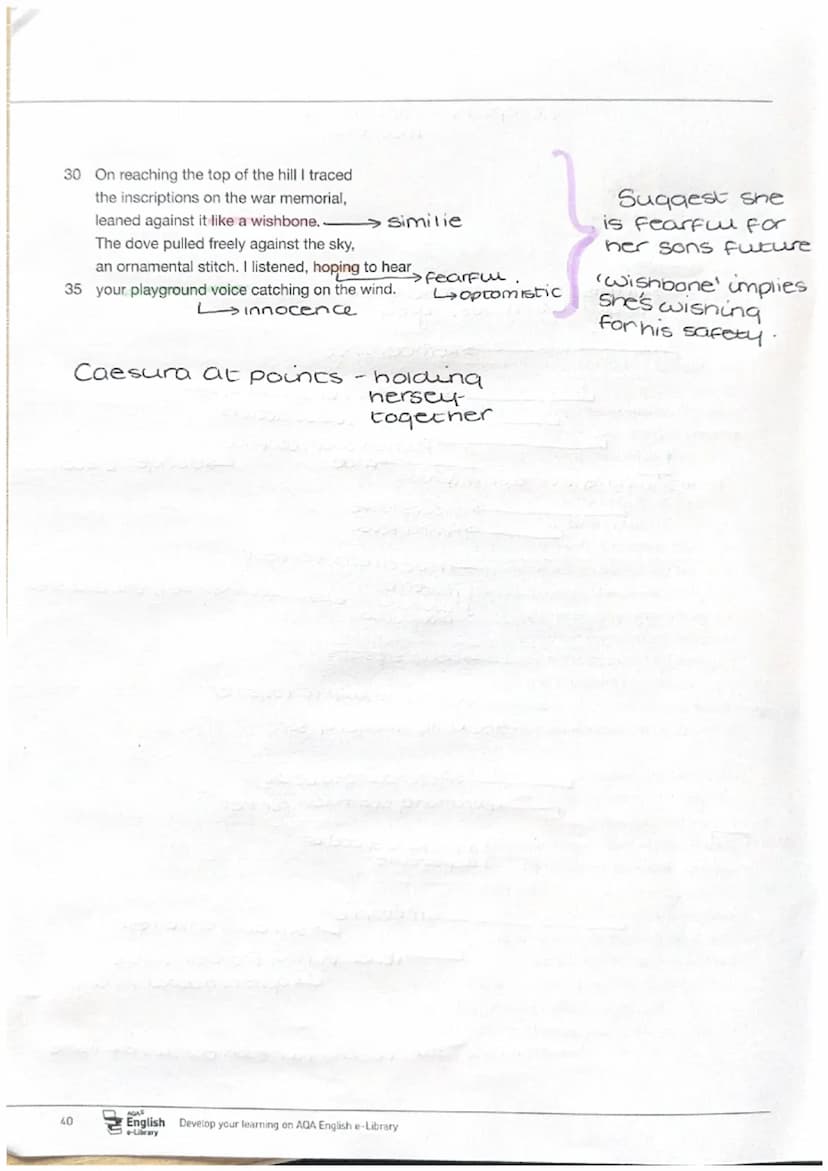 30 On reaching the top of the hill I traced
the inscriptions on the war memorial,
leaned against it like a wishbone. → similie
The dove pulled freely against the sky,
an ornamental stitch. I listened, hoping to hear → fearful.
35 your playground voice catching on the wind. ↳ optomistic
↳ innocence
Suggest she
is fearful for
her sons future
'wishbone' implies
she's wishing
for his safety.
Caesura at points - holding
herself
together
40
AQA
English
e-Library
Develop your learning on AQA English e-Library